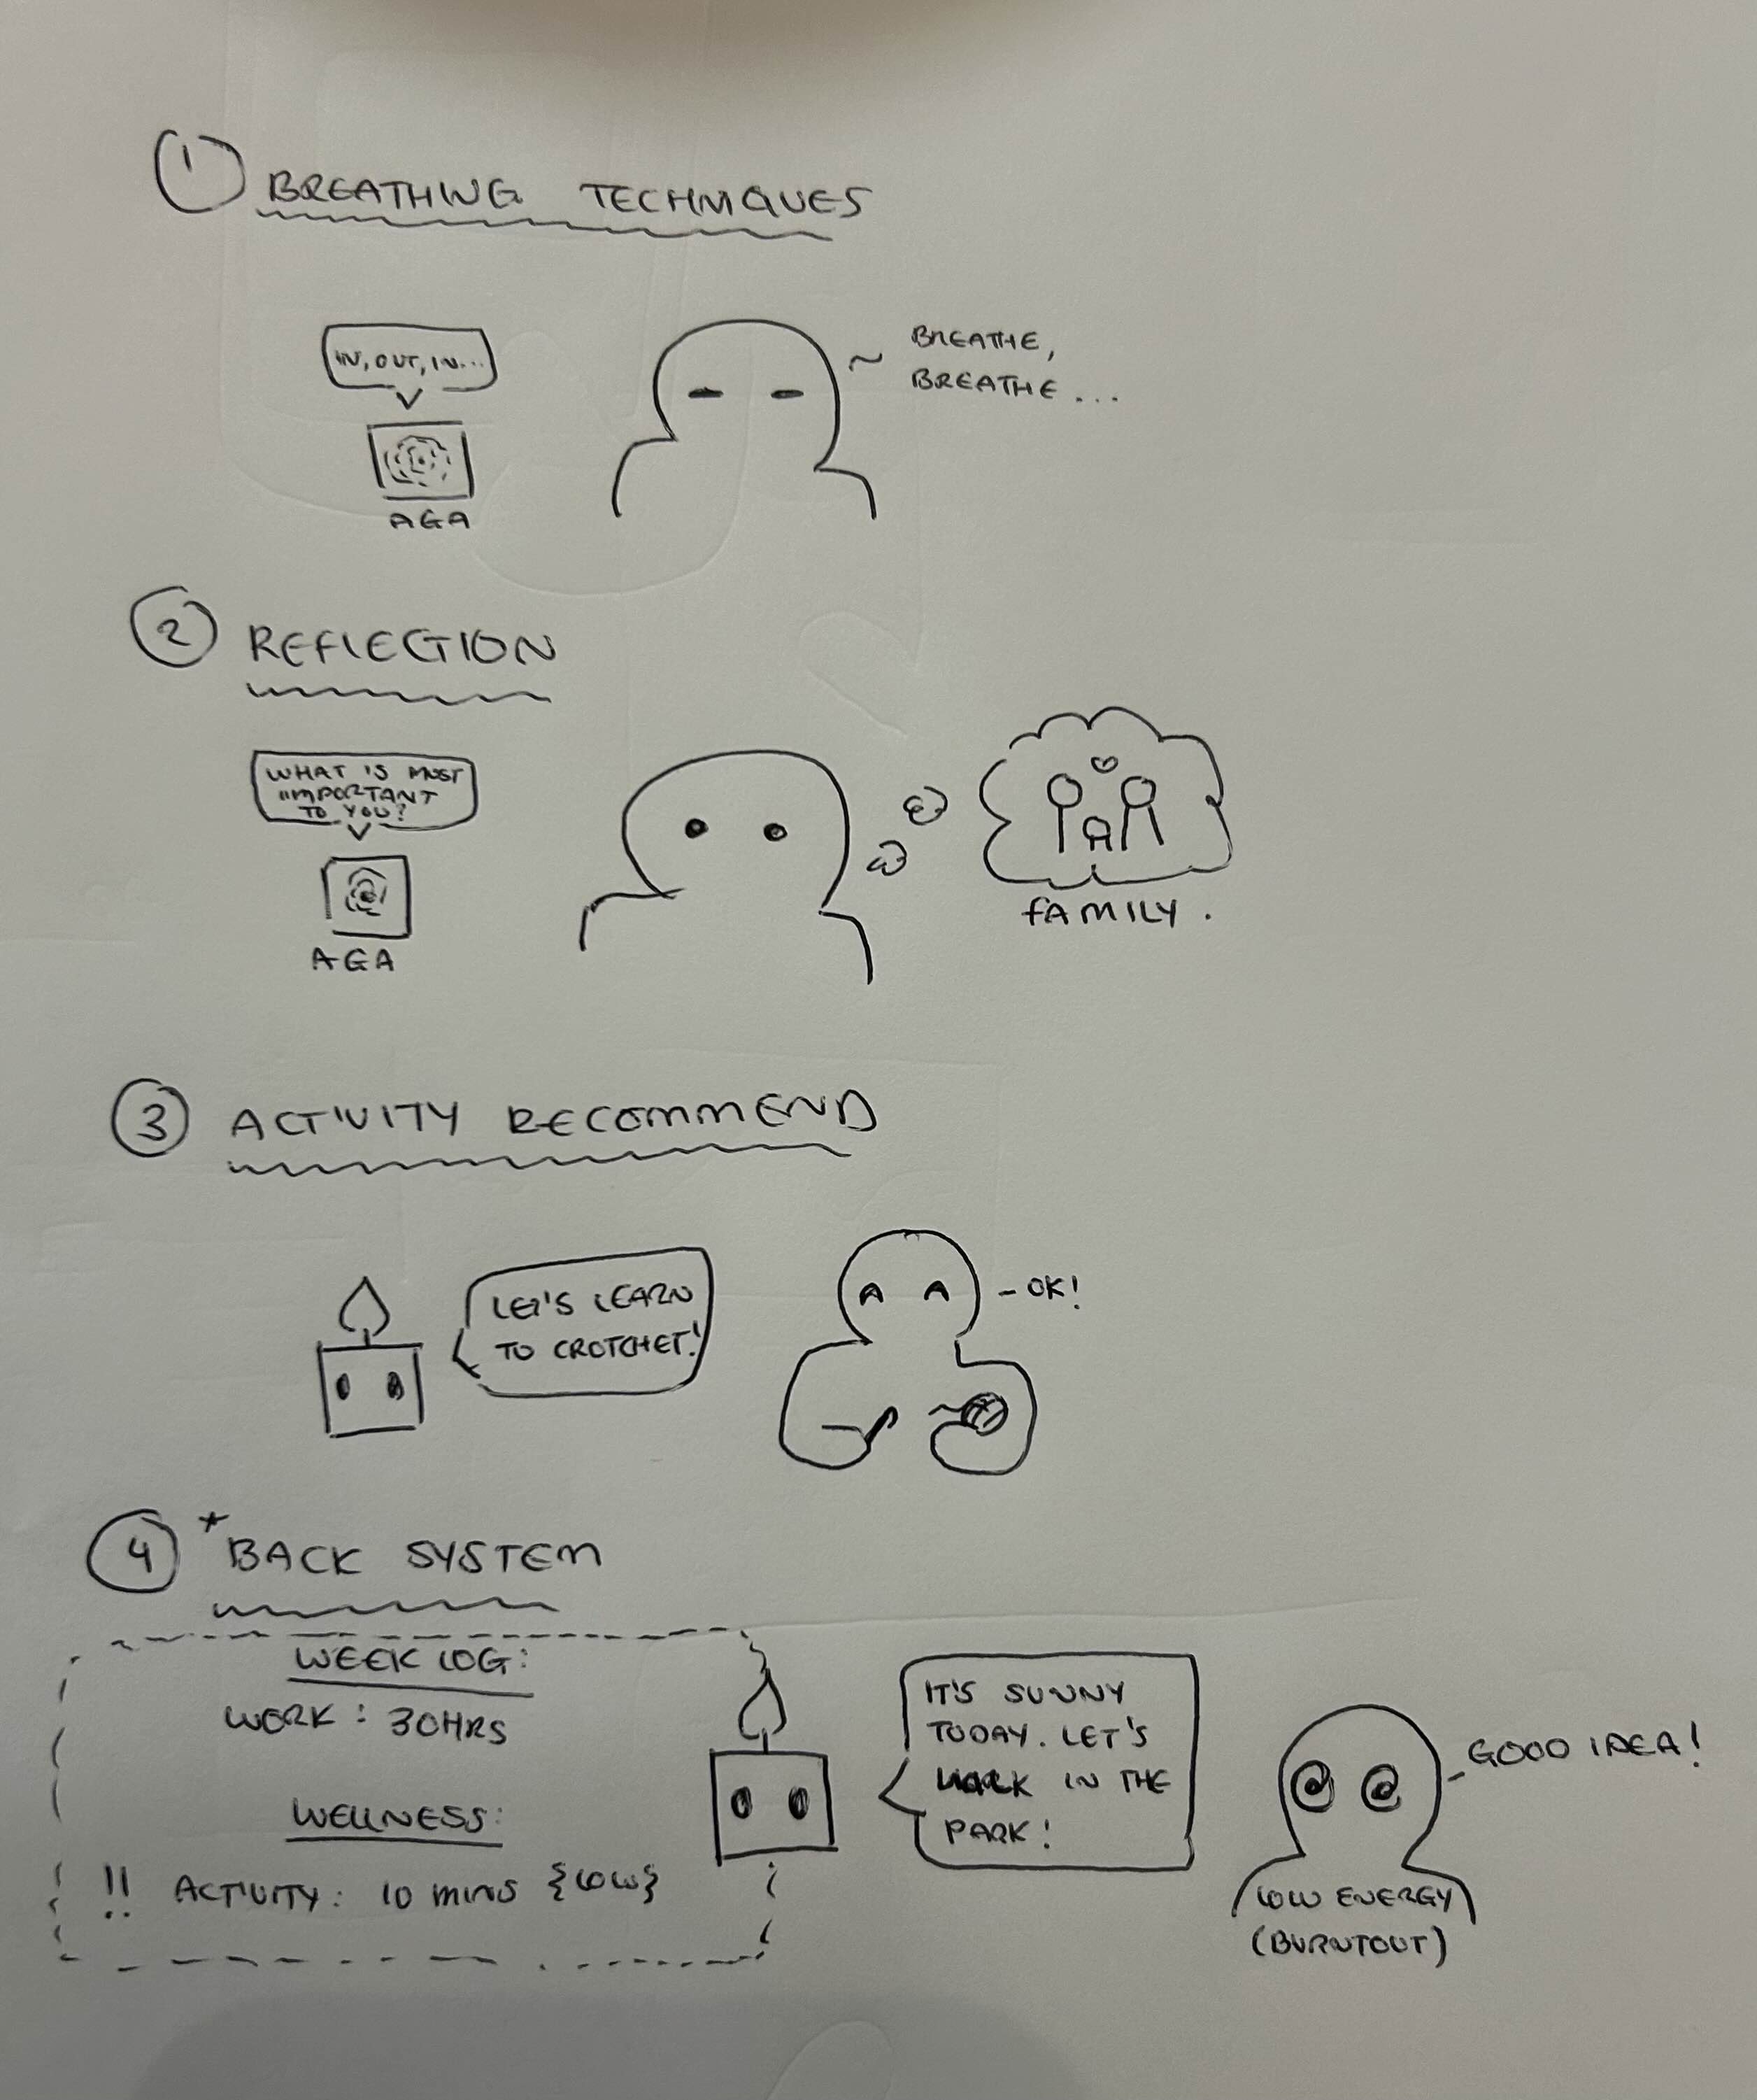 1 BREATHING TECHNIQUES
IN, OUT, IN...
~ BREATHE,
BREATHE...
AGA
2 REFLECTION
WHAT IS MOST
IMPORTANT
TO YOU?
AGA
FAMILY.
3 ACTIVITY RECOMMEND
LET'S LEARN
TO CROTCHET!
- OK!
4 *BACK SYSTEM
WEEK LOG:
WORK: 30HRS
WELLNESS:
!! ACTIVITY: 10 MINS {LOW}
IT'S SUNNY
TODAY. LET'S
IN THE
PARK!
- GOOD IDEA!
LOW ENERGY
(BURNTOUT)